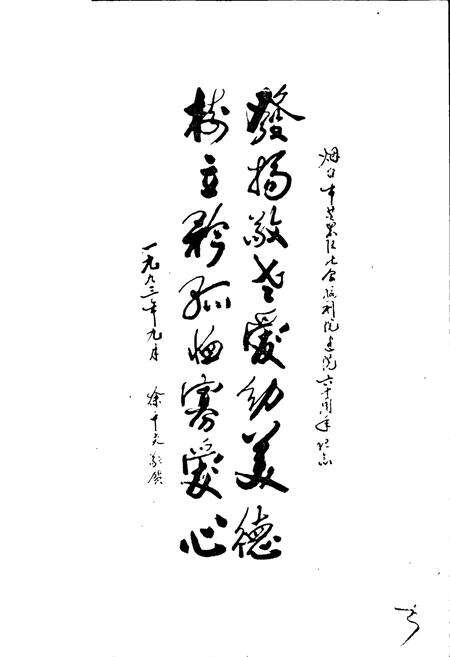 烟台市芝罘区社会福利院建院六十周年纪念
發揚敬老愛幼美德
树立矜孤恤寡愛心
一九九三年九月 徐